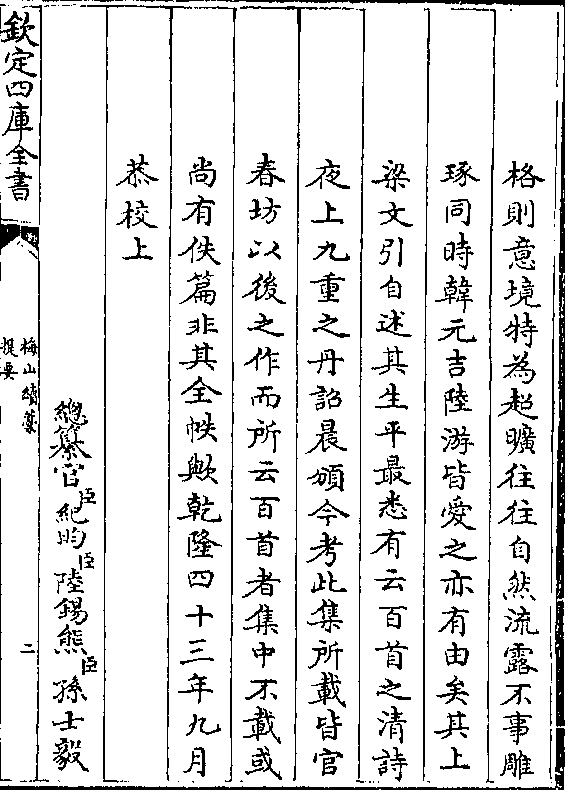 格則意境特為超曠往往自然流露不事雕
琢同時韓元吉陸游皆愛之亦有由矣其上
梁文引自述其生平最悉有云百首之清詩
夜上九重之丹詔晨頒今考此集所載皆官
春坊以後之作而所云百首者集中不載或
尚有佚篇非其全帙歟乾隆四十三年九月
恭校上
總纂官臣紀昀臣陸錫熊臣孫士毅
欽定四庫全書
梅山續藁
提要
二